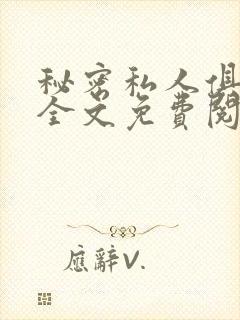 秘密私人俱
全文免費閱
應辭V.